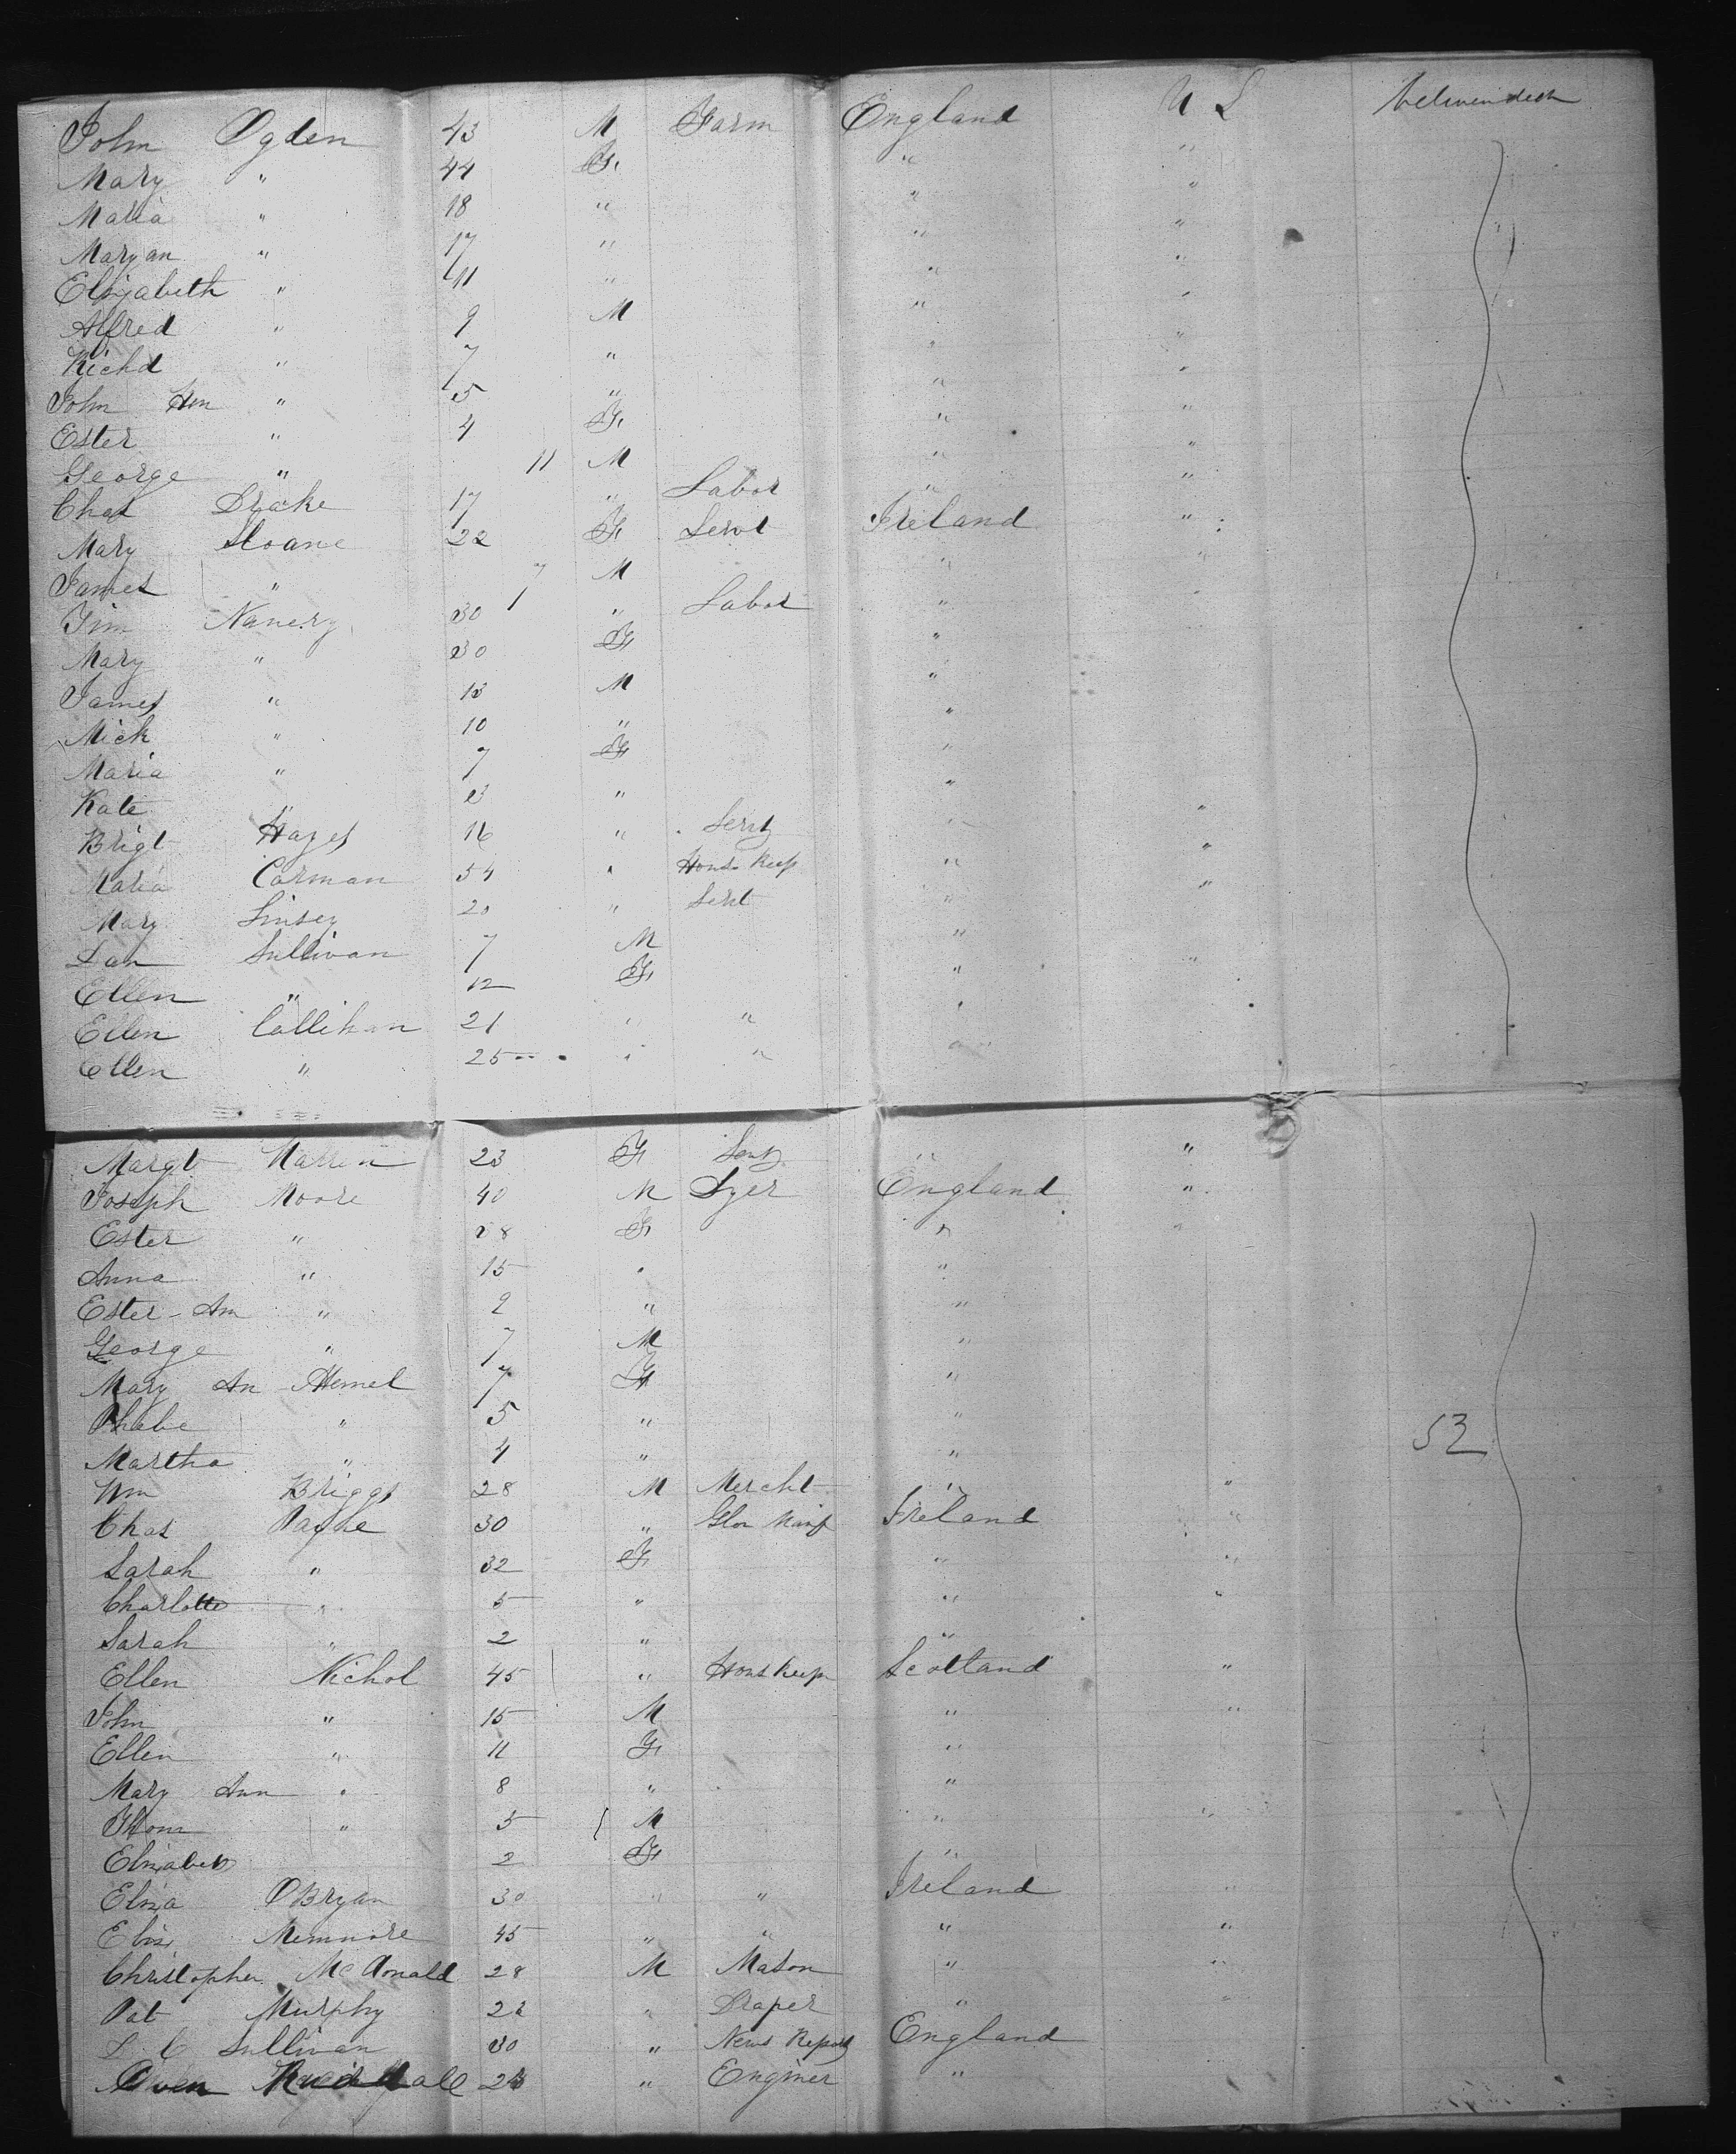 John Ogden 43 M Farm England U S Between deck
Mary " 44 F. " "
Maria " 18 " " "
Maryan " 17 " " "
Elizabeth " 11 " " "
Alfred " 9 M " "
Richd " 7 " " "
John Hen " 5 " " "
Ester " 4 F. " "
George " 11 M " "
Chas Drake 17 " Labor " "
Mary Sloane 22 F Servt Ireland "
James " 7 M " "
Jim Nanery 30 " Labor " "
Mary " 30 F "
James " 13 M "
Mick " 10 " "
Maria " 7 F "
Kate " 3 " "
Brigt Hayes 16 " Servt " "
Maria Carman 54 " House Keep " "
Mary Linsey 20 " Servt " "
Dan Sullivan 7 M "
Ellen " 12 F " "
Ellen Callihan 21 " " "
Ellen " 25 " " "
Margt Warren 23 F Servt " "
Joseph Moore 40 M Dyer England "
Ester " 38 F " "
Anna " 15 " "
Ester Ann " 9 " "
George " 7 M "
Mary An Hemel 7 F "
Phebe " 5 " "
Martha " 4 " " 53
Wm Briggs 28 M Mercht " "
Chas Payne 30 " Manf Ireland "
Sarah " 32 F " "
Charlotte " 5 " " "
Sarah " 2 " "
Ellen Nichol 45 " Hous Keep Scotland "
John " 15 M " "
Ellen " 11 F "
Mary Ann " 8 " "
Thom " 5 M " "
Elizabeth 2 F "
Eliza OBryan 30 " " Ireland "
Eliza 45 " " " "
Christopher Mc Donald 28 M Mason " "
Pat Murphy 22 " Draper " "
Sullivan 30 " News Report England
Owen 24 " Enginer "